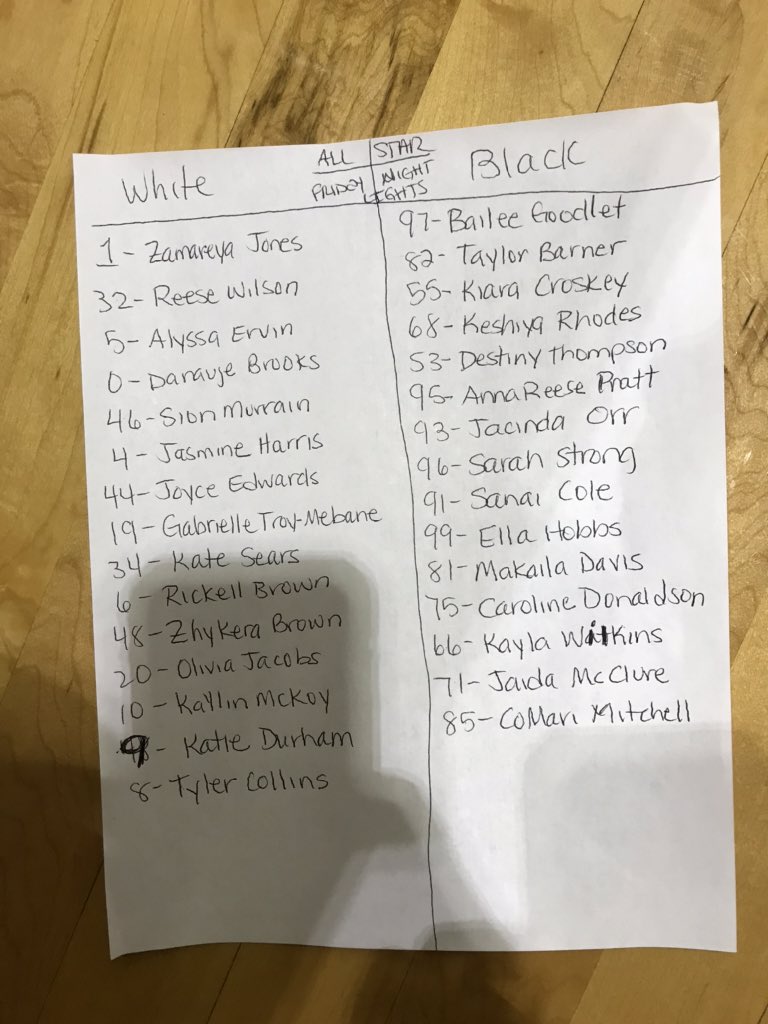 White
ALL STAR
FRIDAY NIGHT LIGHTS
Black
1 - Zamareya Jones
32 - Reese Wilson
5 - Alyssa Ervin
0 - Darauje Brooks
46 - Sion Murrain
4 - Jasmine Harris
44 - Joyce Edwards
19 - Gabrielle Troy-Mebane
34 - Kate Sears
6 - Rickell Brown
48 - Zhykera Brown
20 - Olivia Jacobs
10 - Kaylin McKoy
9 - Katie Durham
8 - Tyler Collins
97 - Bailee Goodlet
82 - Taylor Barner
55 - Kiara Croskey
68 - Keshiya Rhodes
53 - Destiny Thompson
95 - AnnaReese Pratt
93 - Jacinda Orr
96 - Sarah Strong
91 - Sanai Cole
99 - Ella Hobbs
81 - Makaila Davis
75 - Caroline Donaldson
66 - Kayla Witkins
71 - Jaida McClure
85 - CoMari Mitchell